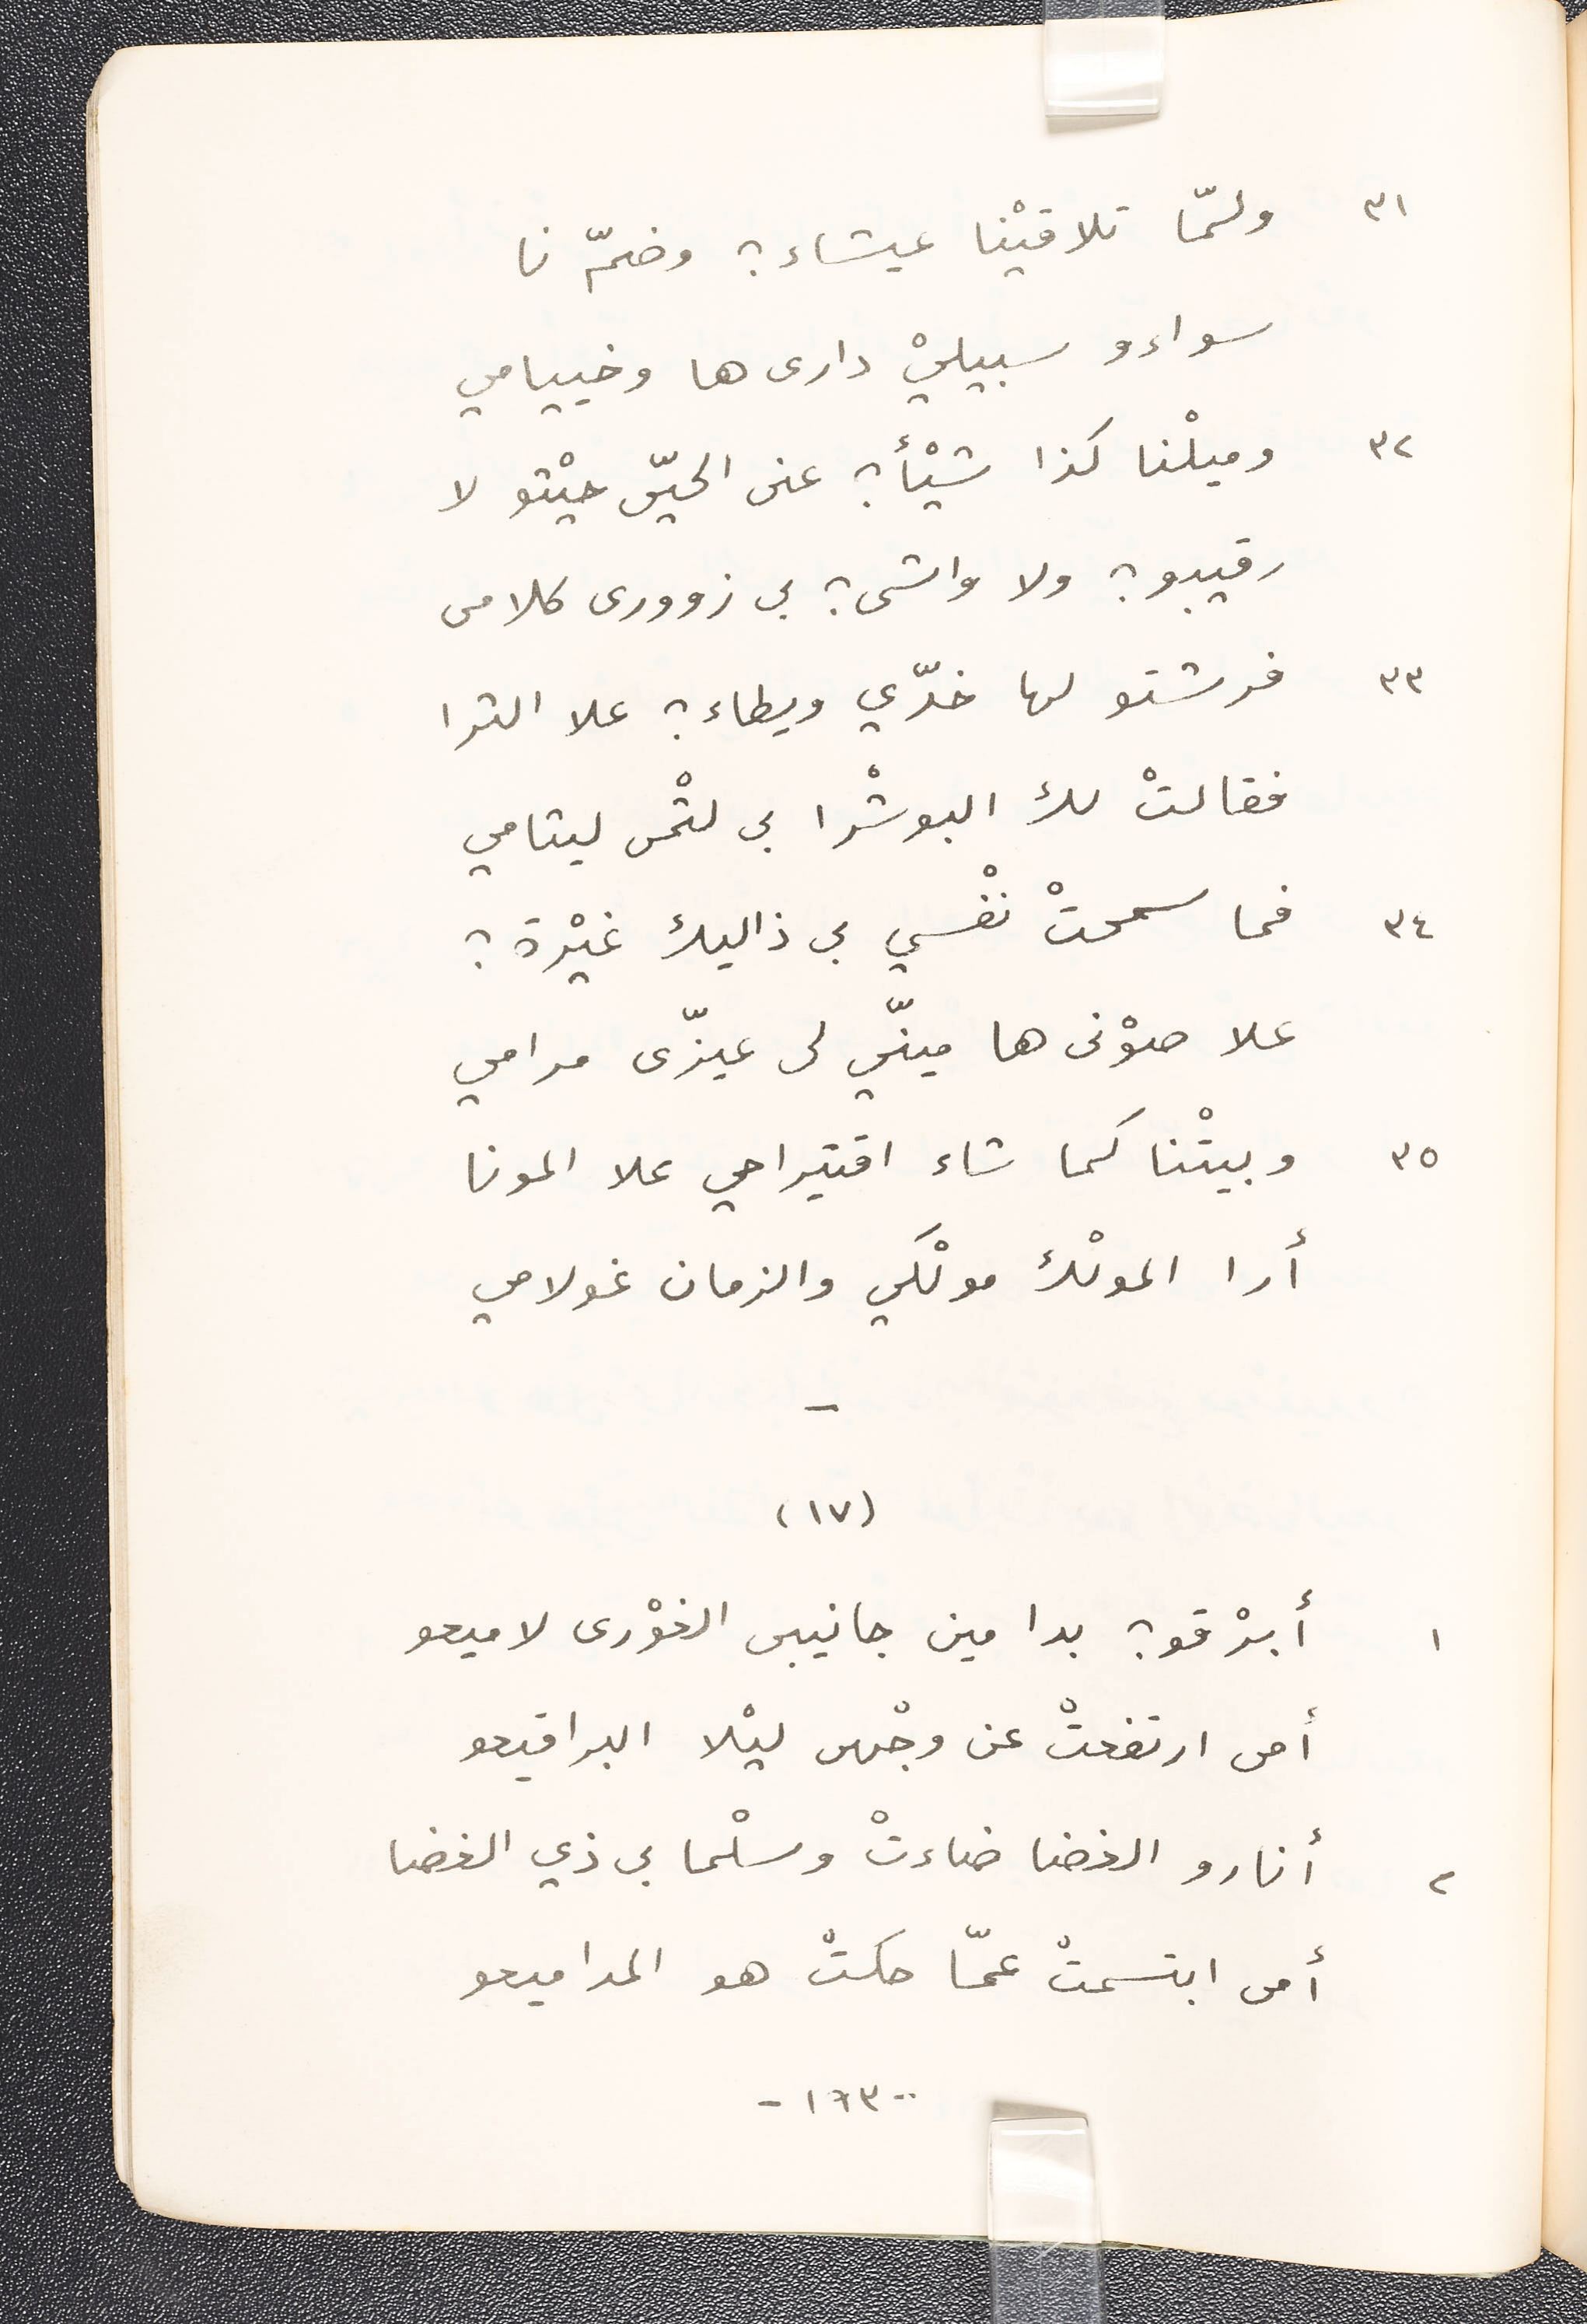 ٣١ ولمّا تلاقيْنا عيشاء؟ وضمّ نا
سواءو سبيليْ دارى ها وخييامي
٣٢ وميلْنا كذا شيْأ؟ عنى الحيّى حيْثو لا
رقيبو؟ ولا واشى؟ بى زوورى كلامى
٣٣ فرشتو لها خدّي ويطاء؟ علا الثرا
فقالتْ لك البوشْرا بى لثْمى ليثامي
٣٤ فما سمحتْ نفْسي بى ذاليك غيْرة؟
علا صوْنى ها مينّي لى عيزّى مرامي
٣٥ وبيتْنا كما شاء اقتيراحي علا المونا
أرا المولْك مولْكي والزمان غولامي
–
(١٧)
١ أبرْقو؟ بدا مين جانيبى الغوْرى لاميعو
أمى ارتفعتْ عن وجْهى ليْلا البراقيعو
٢ أنارو الغضا ضاءتْ وسلْما بى ذي الغضا
أمى ابتسمتْ عمّا حكتْ هو المداميعو
-١٦٣-